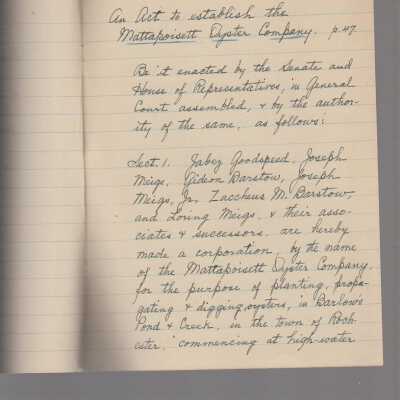 An Act to establish the
Mattapoisett Oyster Company. p. 47.
Be it enacted by the Senate and
House of Representatives, in General
Court assembled, & by the author-
ity of the same, as follows:
Sect. 1. Jabez Goodspeed, Joseph
Meigs, Gideon Barstow, Joseph
Meigs, Jr. Zaccheus M. Barstow,
and Loring Meigs, & their asso-
ciates & successors, are hereby
made a corporation, by the name
of the Mattapoisett Oyster Company,
for the purpose of planting, propa-
gating & digging oysters, in Barlows
Pond & Creek, in the town of Roch-
ester, commencing at high-water